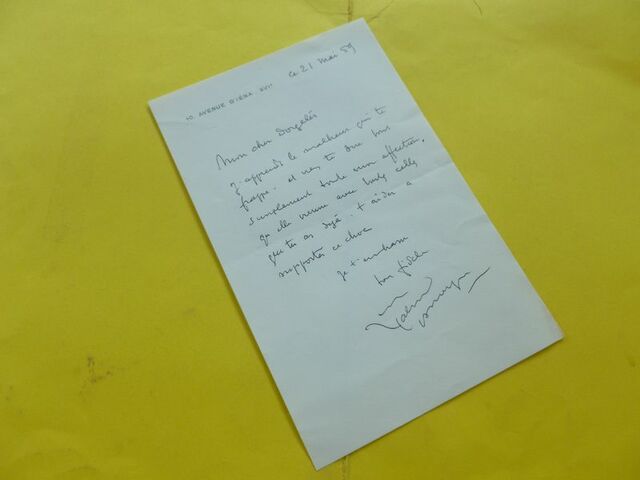 10, AVENUE D'IÉNA XVI
ce 21 mai 59
Mon cher Dorgelès
J'apprends le malheur qui te
frappe. et veux te dire tout
simplement toute mon affection,
qu'elle vienne avec toutes celles
que tu as déjà t'aider à
supporter ce choc
Je t'embrasse
ton fidèle